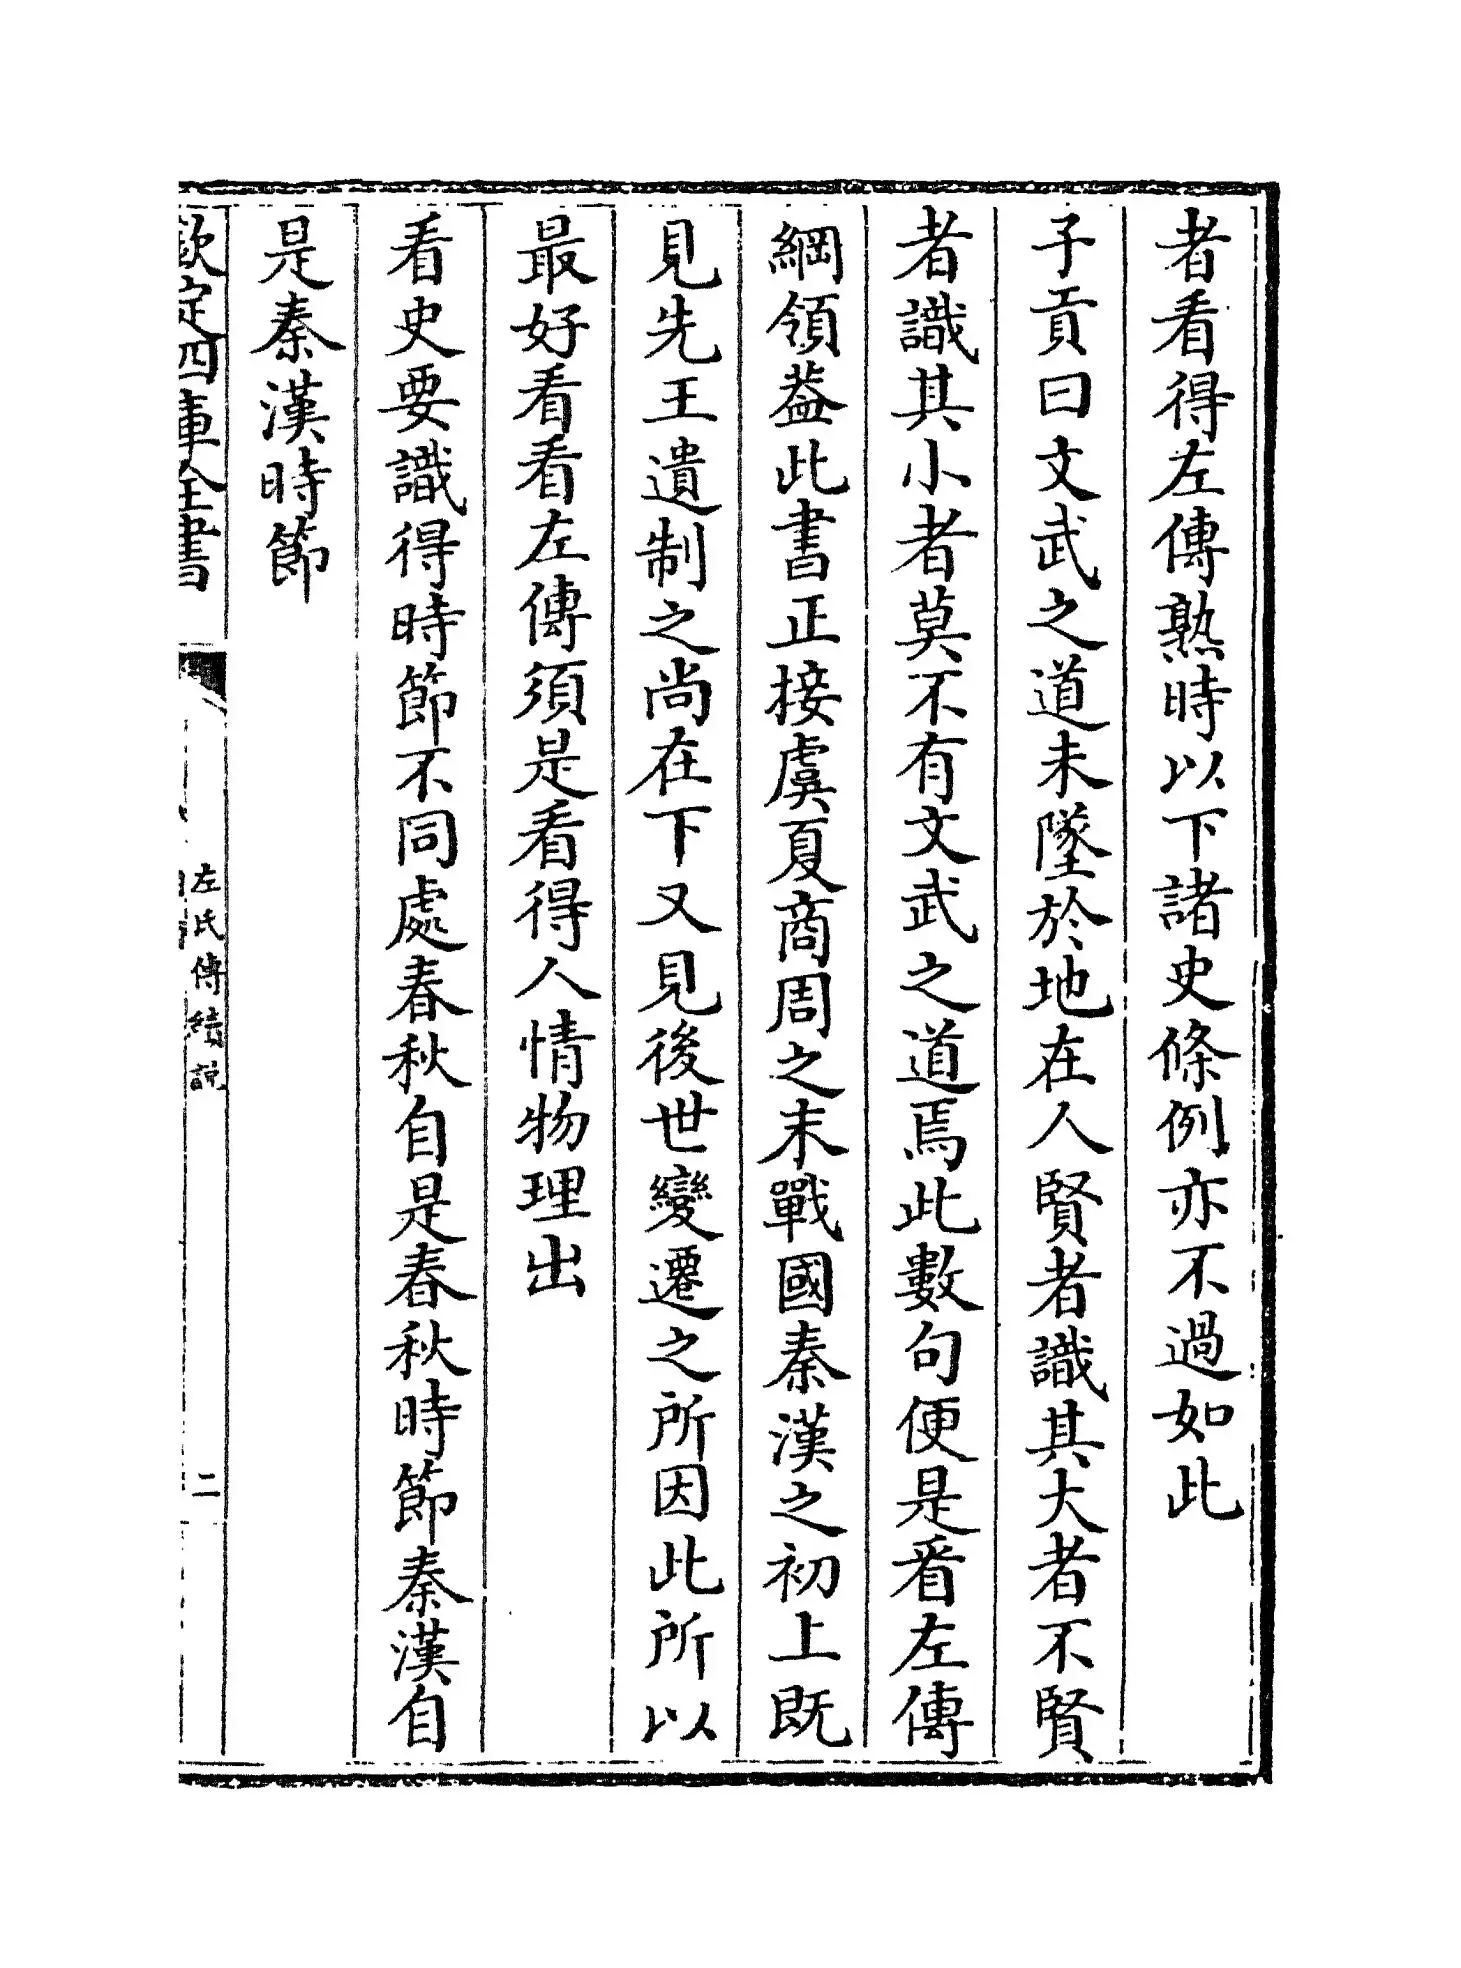 者看得左傳熟時以下諸史條例亦不過如此
子貢曰文武之道未墜於地在人賢者識其大者不賢
者識其小者莫不有文武之道焉此數句便是看左傳
綱領葢此書正接虞夏商周之末戰國秦漢之初上既
見先王遺制之尚在下又見後世變遷之所因此所以
最好看看左傳須是看得人情物理出
看史要識得時節不同處春秋自是春秋時節秦漢自
是秦漢時節
欽定四庫全書
左氏傳續說
二